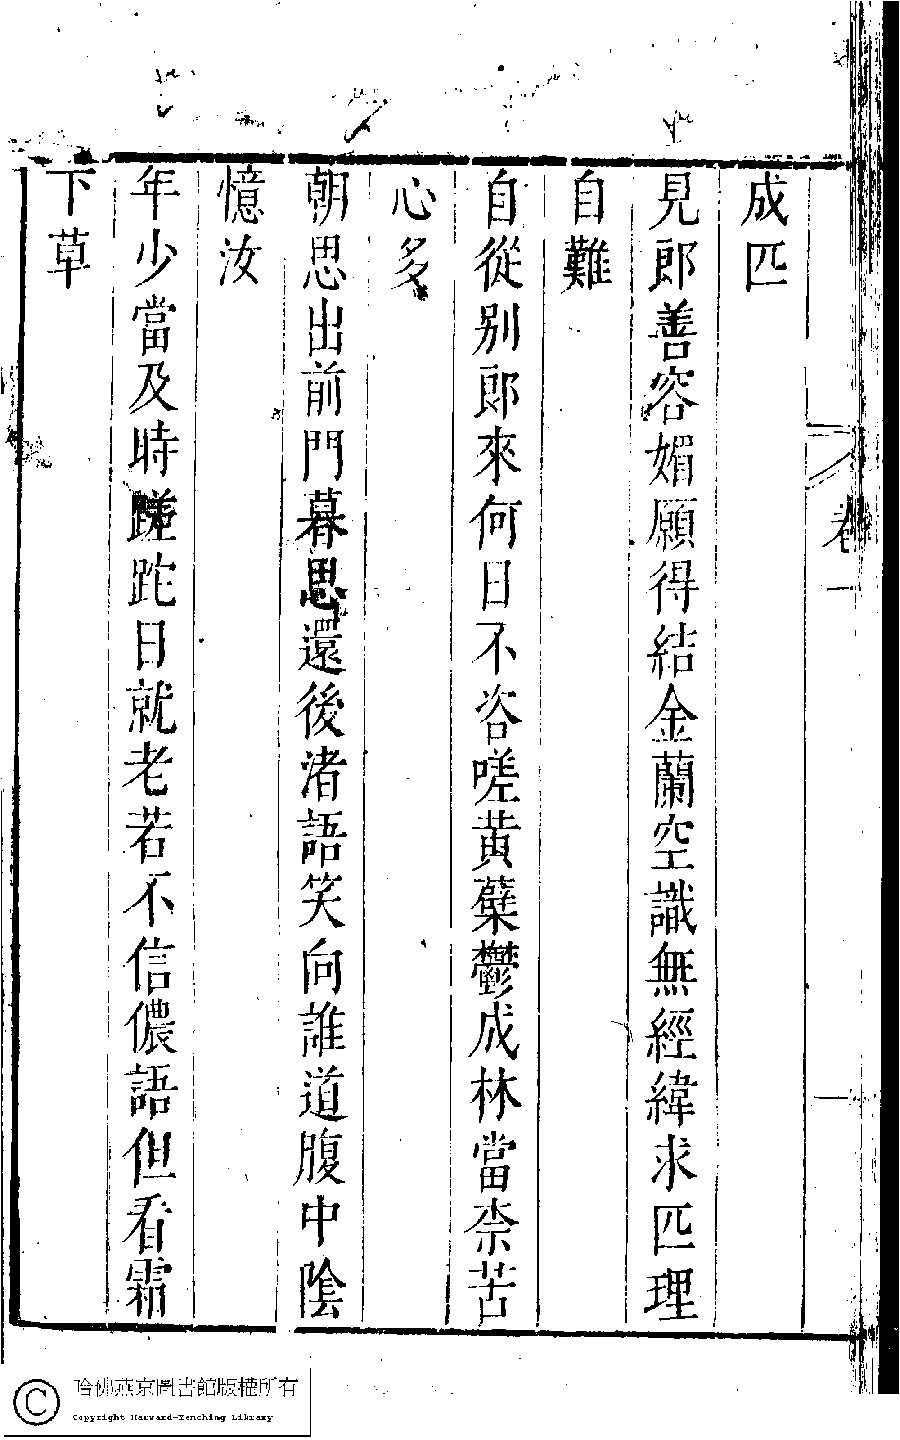 成匹
見郎善容媚願得結金蘭空識無經緯求匹理
自難
自從别郎來何日不咨嗟黄蘗鬱成林當柰苦
心多
朝思出前門暮思還後渚語笑向誰道腹中陰
憶汝
年少當及時蹉跎日就老若不信儂語但看霜
下草
卷一
哈佛燕京圖書館版權所有
Copyright Harvard-Yenching Library